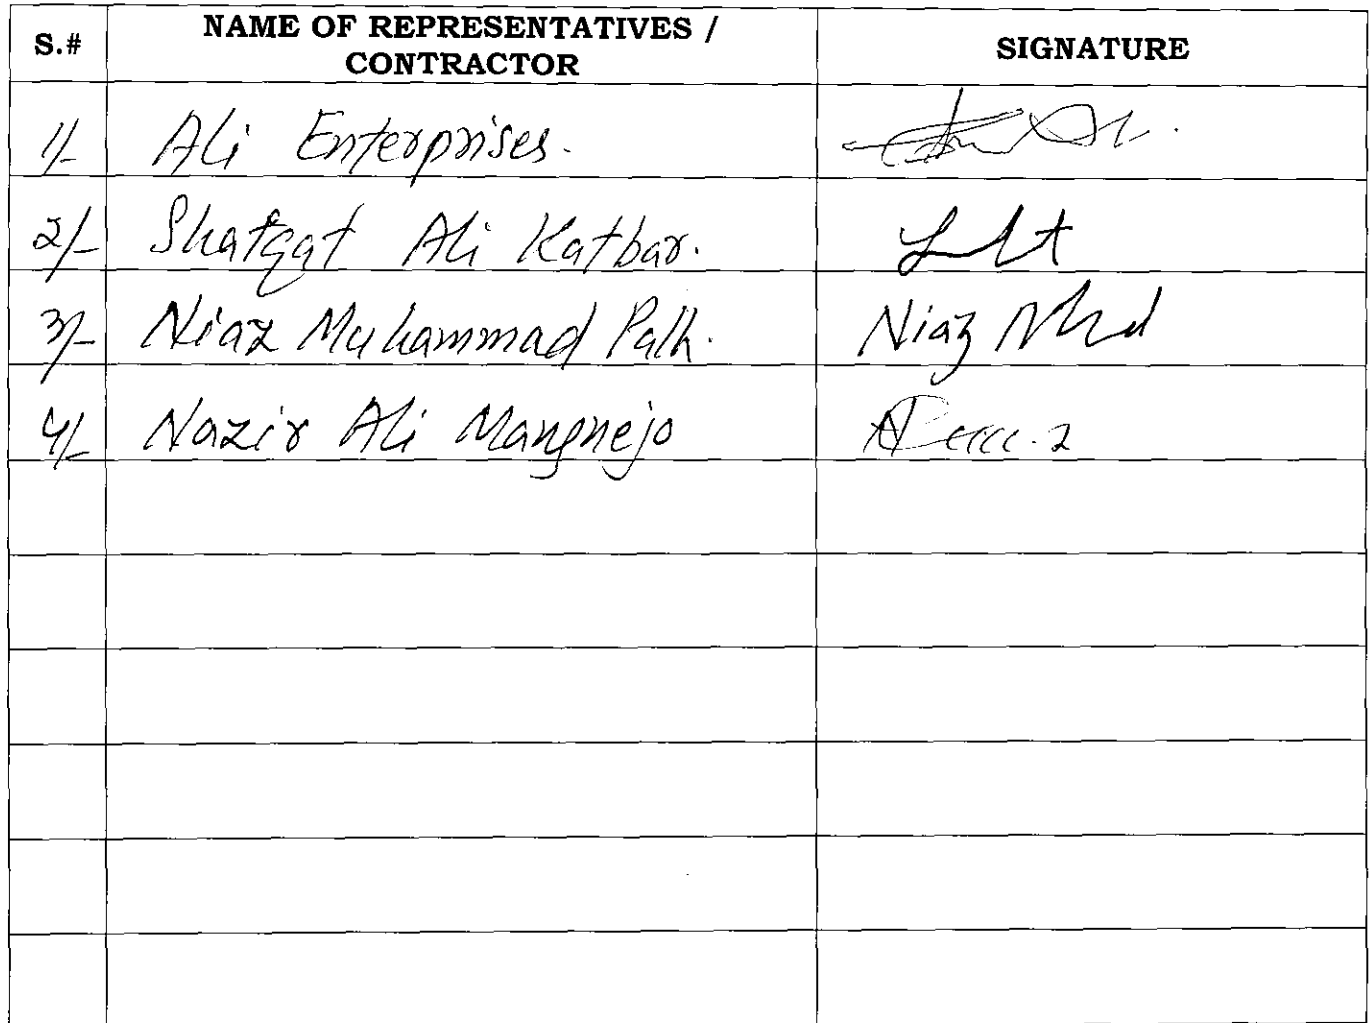 S.# NAME OF REPRESENTATIVES / CONTRACTOR SIGNATURE
1/- Ali Enterprises.
2/- Shafqat Ali Katbar.
3/- Niaz Muhammad Palh. Niaz Mhd
4/- Nazir Ali Mangnejo